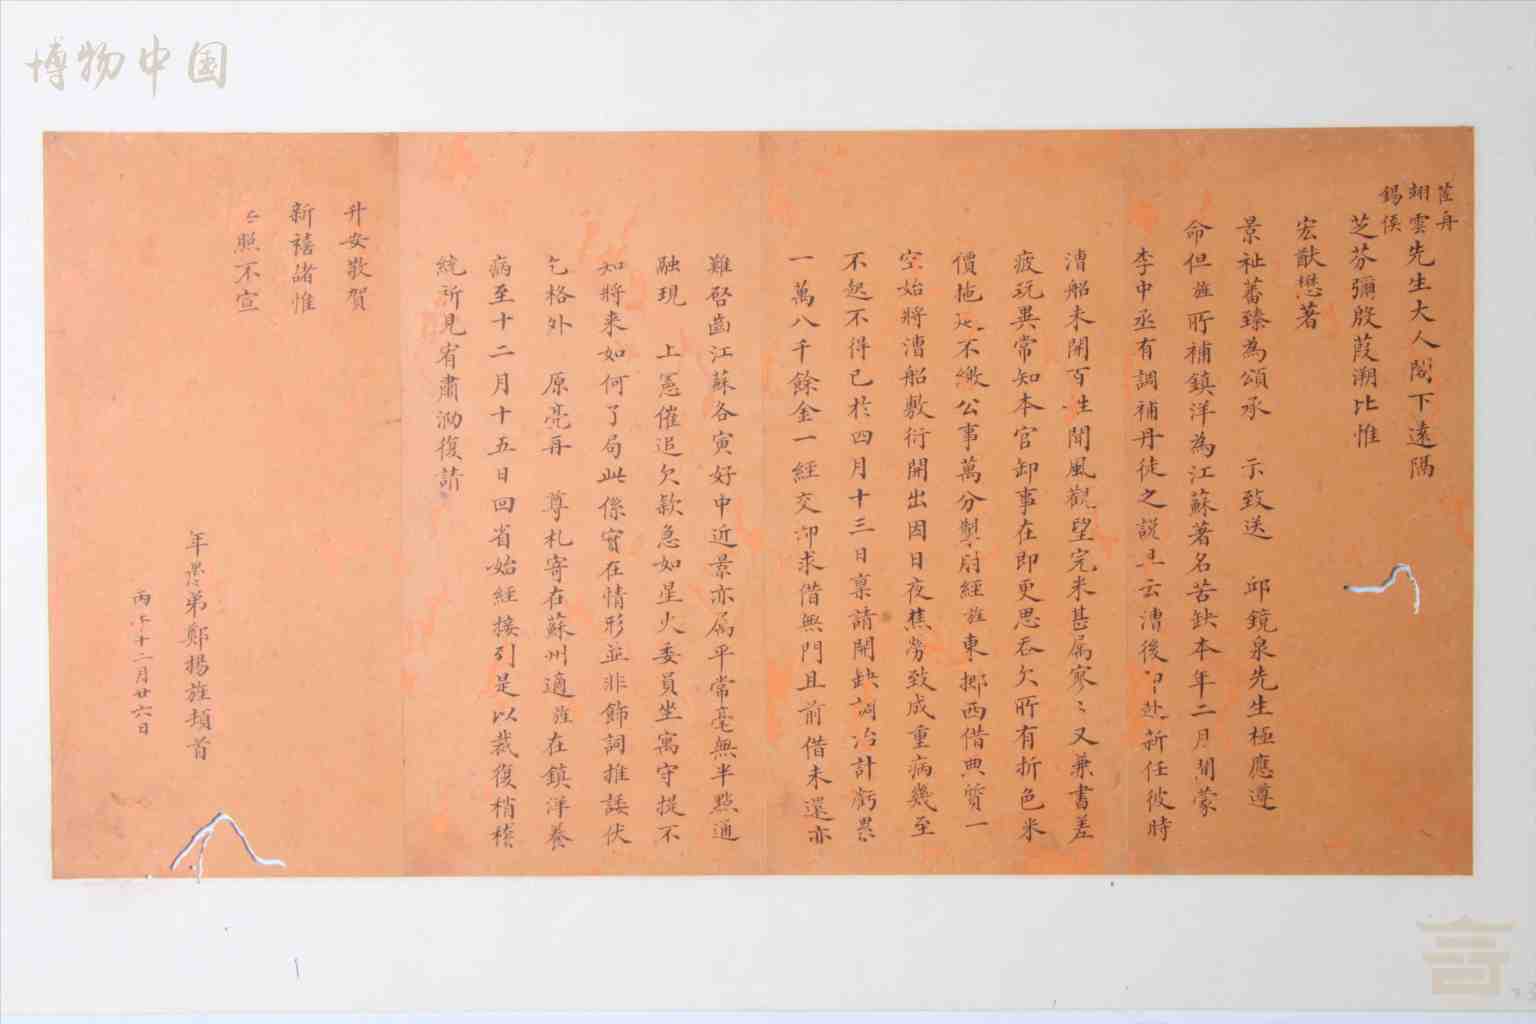 博物中国
蓮舟
翊雲先生大人閣下遠隔
錫侯
芝芬彌殷葭溯比惟
宏猷懋著
景祉蕃臻為頌承 示致送 邱鏡泉先生極應遵
命但旌所補鎮洋為江蘇著名苦缺本年二月間蒙
李中丞有調補丹徒之說且云漕後即赴新任彼時
漕船未開百姓聞風觀望完米甚屬寥〻又兼書差
疲玩異常知本官卸事在即更思吞欠所有折色米
價拖延不繳公事萬分掣肘經旌東挪西借典質一
空始將漕船敷衍開出因日夜焦勞致成重病幾至
不起不得已於四月十三日稟請開缺調治計虧累
一萬八千餘金一經交卸求借無門且前借未還亦
難啓齒江蘇各寅好中近景亦屬平常毫無半點通
融現 上憲催追欠款急如星火委員坐寓守提不
知將来如何了局此係實在情形並非飾詞推諉伏
乞格外 原亮再 尊札寄在蘇州適旌在鎮洋養
病至十二月十五日回省始經接到是以裁復稍稽
統祈見宥肅泐復請
升安敬賀
新禧諸惟
心照不宣
年愚弟鄭揚旌頓首
丙 十二月廿六日